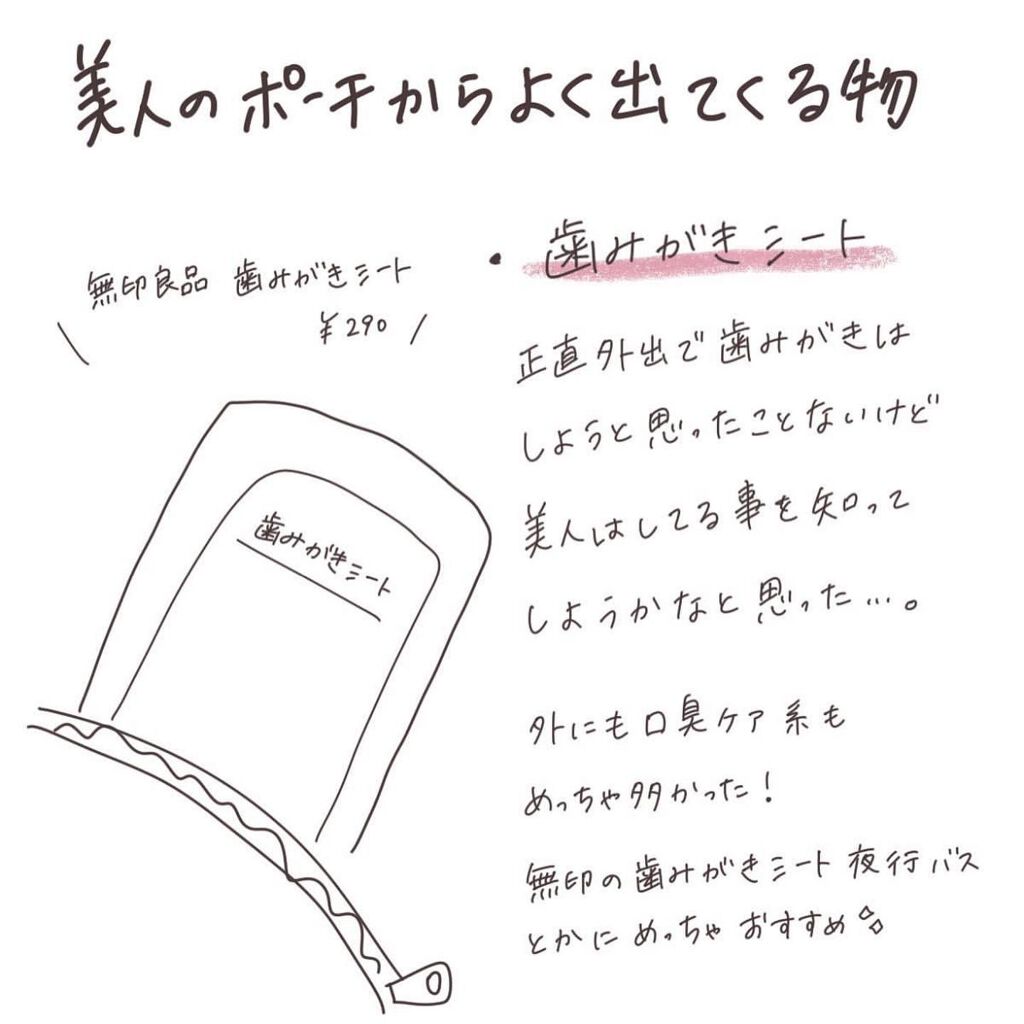 美人のポーチからよく出てくる物
無印良品 歯みがきシート
¥290
歯みがきシート
・歯みがきシート
正直外出で歯みがきは
しようと思ったことないけど
美人はしてる事を知って
しようかなと思った…。
外にも口臭ケア系も
めっちゃ多かった!
無印の歯みがきシート夜行バス
とかにめっちゃおすすめ